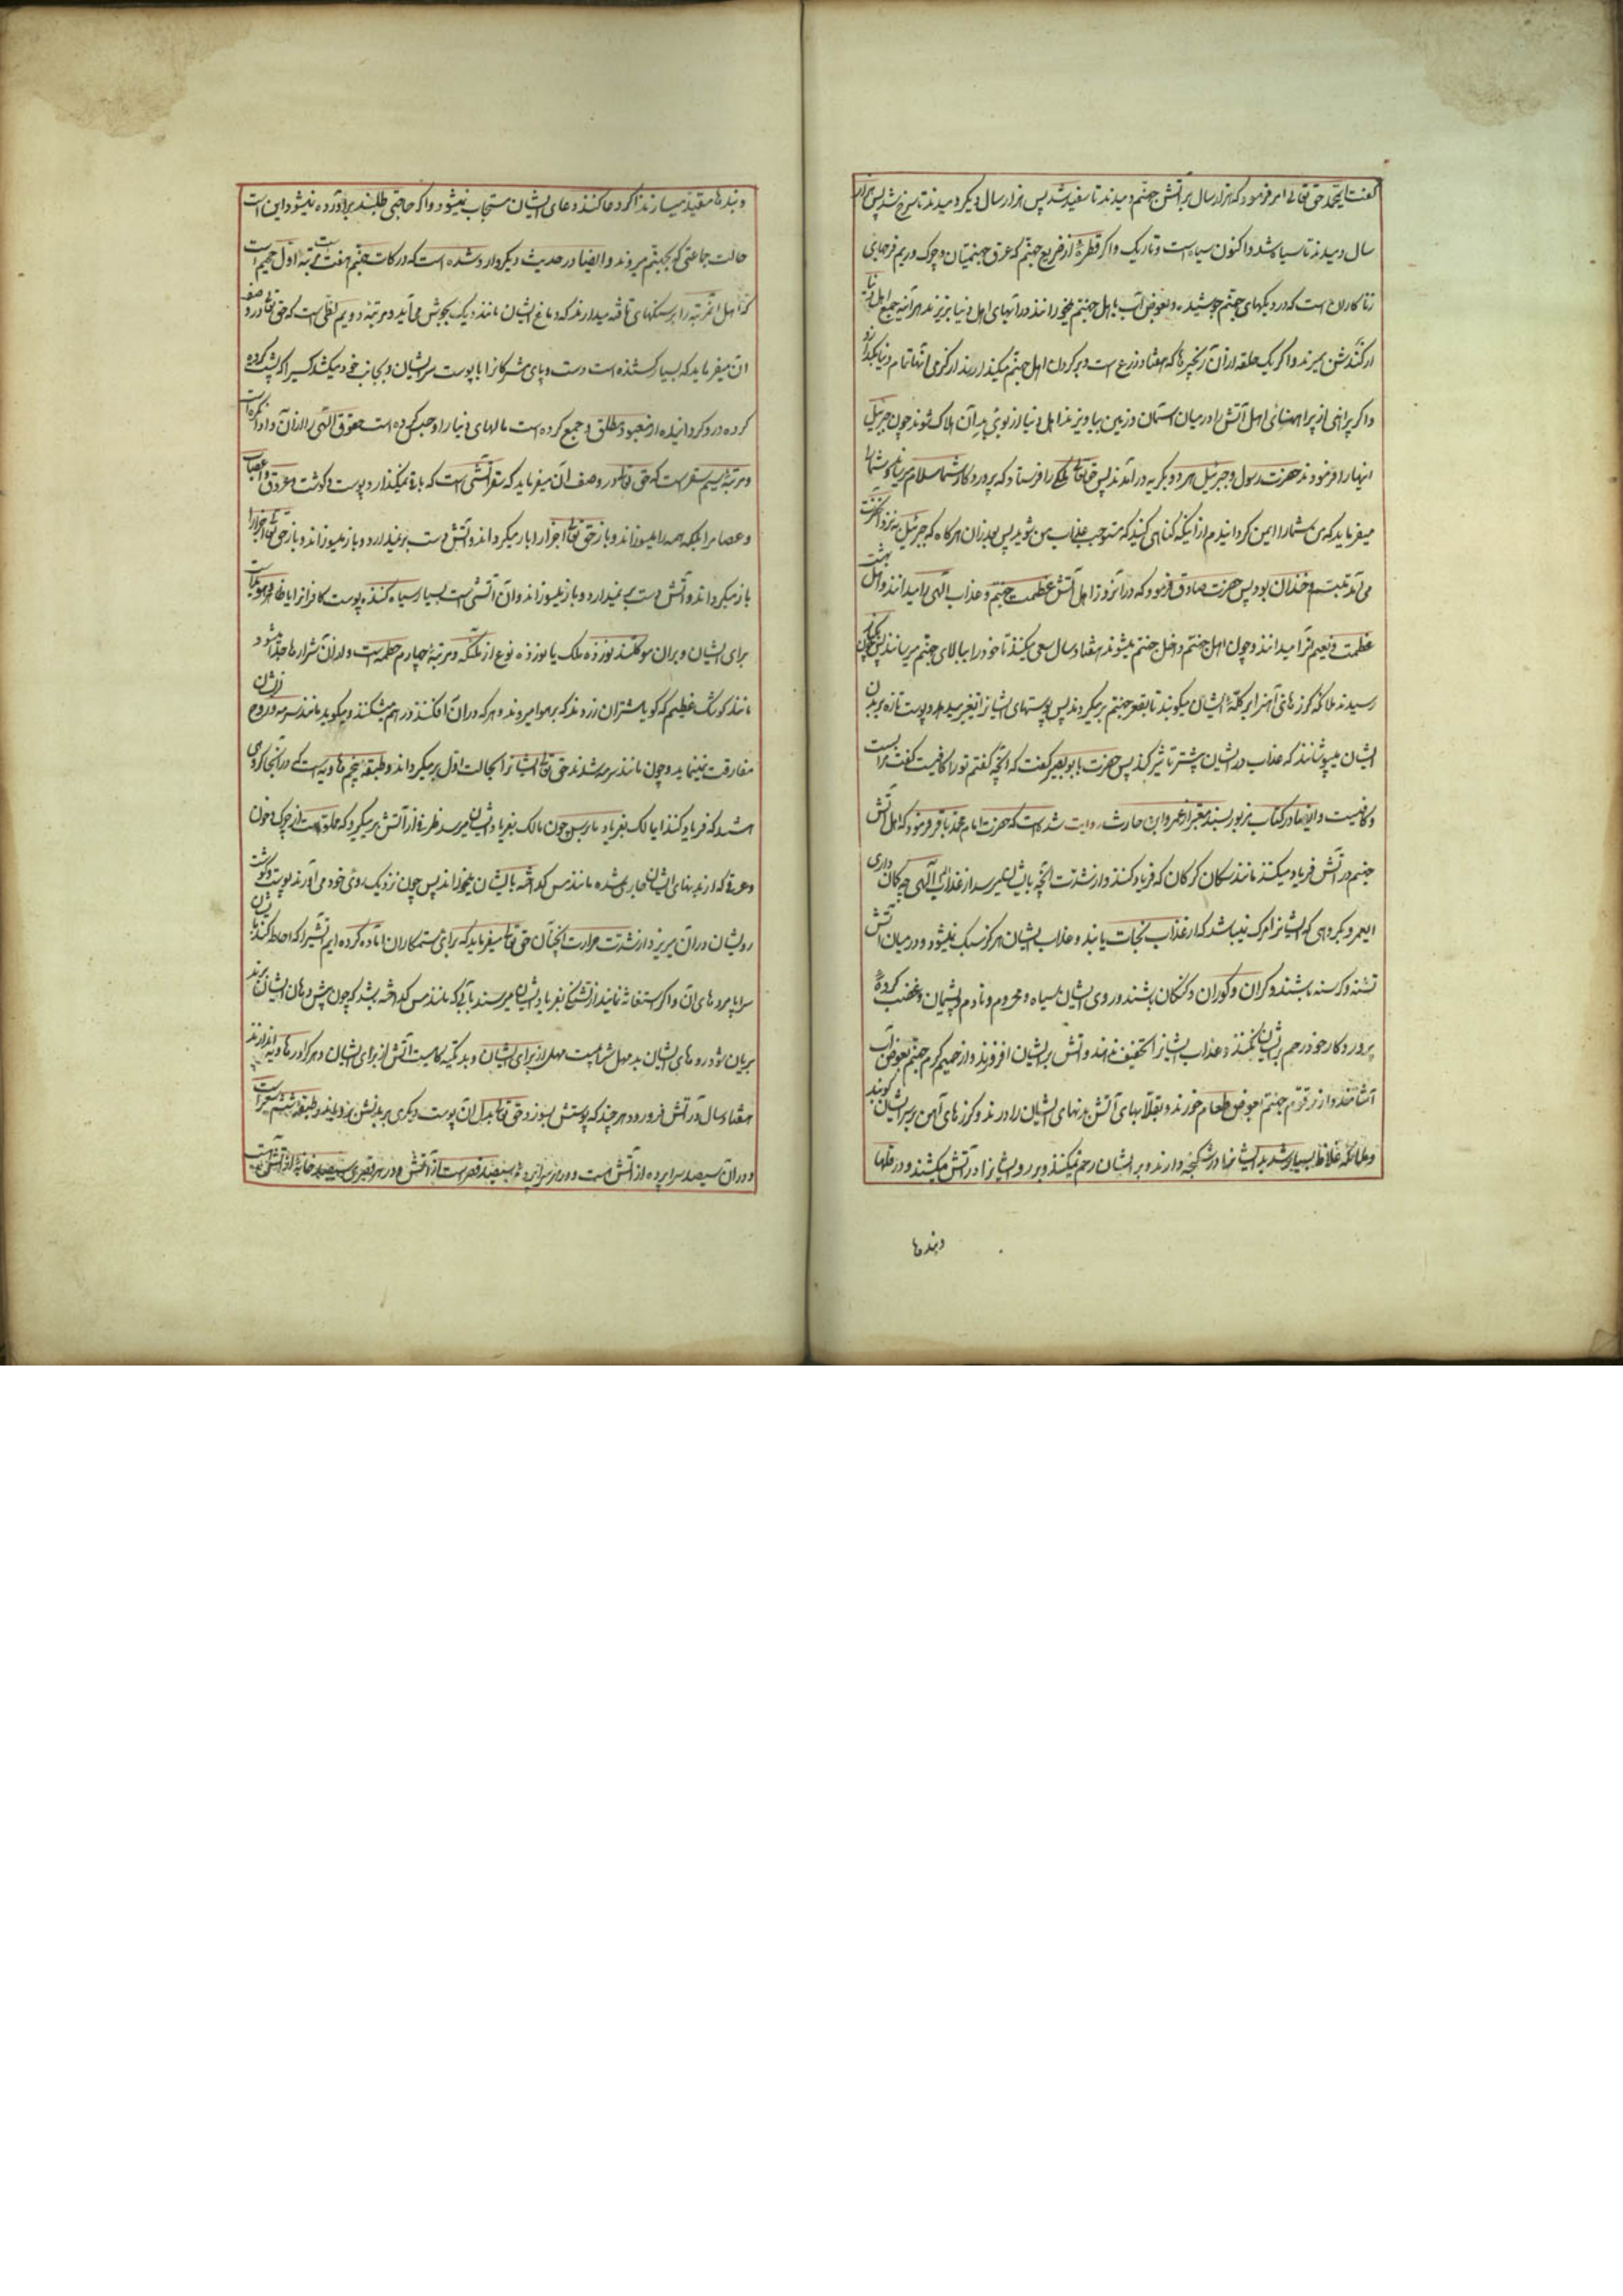 گفت یا محمد حق تعالی امر فرمود که هزار سال بر آتش جهنم دمیدند تا سفید شد پس هزار سال دیگر دمیدند تا سرخ شد پس هزار
سال دمیدند تا سیاه شد و اکنون سیاه است و تاریک و اگر قطرهٔ از ضریع جهنم که عرق جهنمیان و چرک و ریم فرجهای
زنا کاران است که در دیکهای جهنم جوشیده و بعوض آب باهل جهنم میخورانند در آبهای اهل دنیا بریزند هرآینه جمیع اهل دنیا
از گندش بمیرند و اگر یک حلقه از آن زنجیرها که هفتاد ذرع است و بر گردن اهل جهنم میگذارند از گرمی آنها تمام دنیا بگدازد
و اگر پیراهنی از پیراهنهای اهل آتش را در میان آسمان و زمین بیاویزند اهل دنیا از بوی بد آن هلاک شوند چون جبرئیل
اینها را فرمود حضرت رسول و جبرئیل هر دو بگریه در آمدند پس حق تعالی ملکی را فرستاد که پرورد کار شما سلام میرساند شما را
میفرماید که من شما را ایمن گردانیدم از اینکه گناهی کنید که مستوجب عذاب من شوید پس بعد از آن هرگاه که جبرئیل بنزد آنحضرت
می آمد متبسم و خندان بود پس حضرت صادق فرمود که در آنروز اهل آتش عظمت جهنم و عذاب الهی را میدانند و اهل بهشت
عظمت و نعیم آنرا میدانند و چون اهل جهنم داخل جهنم میشوند هفتاد سال سعی میکنند تا خود را ببالای جهنم میرسانند پس چون
رسیدند ملائکه گرزهای آهن بر کلهٔ ایشان میکوبند تا بقعر جهنم برمیگردند پس پوستهای ایشانرا تغییر میدهند و پوست تازه بر بدن
ایشان میپوشانند که عذاب در ایشان بیشتر تاثیر کند پس حضرت بابو بصیر گفت که آنچه گفتم تو را کافیست گفت بس است مرا
و کافیست و ایضا در کتاب مزبور بسند معتبر از عمرو ابن حارث روایت شده است که حضرت امام محمد باقر فرمود که اهل آتش
جهنم در آتش فریاد میکنند مانند سگان و گرگان که فریاد کنند و از شدت آنچه بایشان میرسد از عذاب الهی چه گمان داری
ایعمرو بگروهی که ایشانرا مرگ نمیباشد که از عذاب نجات یابند و عذاب ایشان هرگز سبک نمیشود و در میان آتش
تشنه و گرسنه باشند و کران و کوران و گنگان باشند و روی ایشان سیاه و محروم و نادم و پشیمان و غضب کردهٔ
پروردکار خود رحم بر ایشان نمیکنند و عذاب ایشانرا تخفیف نمیدهند و آتش بر ایشان افروزند و از حمیم گرم جهنم بعوض آب
آشامند و از زقوم جهنم بعوض طعام خورند و بقلابهای آتش بدنهای ایشان را درند و گرزهای آهن بر سر ایشان کوبند
و ملائکه غلاظ بسیار شدید ایشانرا در شکنجه دارند و بر ایشان رحم نمیکنند و بر رو ایشانرا در آتش میکشند و در غلها
و بندها
و بندها مقید میسازند اگر دعا کنند دعای ایشان مستجاب نمیشود و اگر حاجتی طلبند برآورده نمیشود این است
حالت جماعتی که بجهنم میروند و ایضا در حدیث دیگر وارد شده است که درکات جهنم هفت مرتبه است اول جحیم است
که اهل آنمرتبه را بر سنگهای تافته میدارند که دماغ ایشان مانند دیک بجوش می آید و مرتبهٔ دویم لظی است که حق تعالی در وصف
آن میفرماید که بسیار کشنده است دست و پای مشرکانرا با پوست سر ایشان و بجانب خود میکشد کسیرا که پشت کرده
کرده و رو گردانیده از معبود مطلق و جمع کرده است مالهای دنیا را و حبس کرده است حقوق الهی را از آن و ادا نکرده است
و مرتبهٔ سیم سقر است که حق تعالی در وصف آن میفرماید که سقر آتشی است که باقی نمیگذارد پوست و گوشت و عروق و اعصاب
و عصا مرا بلکه همه را میسوزاند و باز حق تعالی اجزا را باز میگرداند و آتش دست بر نمیدارد و باز میسوزاند و باز حق تعالی اجزا را
باز میگرداند و آتش دست بر نمیدارد و باز میسوزاند و آن آتشی است بسیار سیاه کننده پوست کافرانرا یا ظاهر و هویداست
برای ایشان و بر آن موکلند نوزده ملک یا نوزده نوع از ملئکه و مرتبهٔ چهارم حطمه است و از آن شرارها جدا میشود
مانند کوشک عظیم که گویا شتران زردند که بر هوا میروند و هرکه در آن افکنند در هم میشکند و میکوبد مانند سرمه و روح از ایشان
مفارقت نمینماید و چون مانند سرمه شدند حق تعالی ایشانرا بحالت اول برمیگرداند و طبقهٔ پنجم هاویه است که در آنجا گروهی
هستند که فریاد کنند ای مالک بفریاد ما برس چون مالک بفریاد ایشان میرسد ظرفی از آتش برمیگیرد که مملو است از چرک و خون
و عرقی که از بدنهای ایشان جاری شده مانند مس گداخته بایشان میخوراند پس چون نزدیک روی خود می آورند پوست و گوشت
روی ایشان در آن میریزد از شدت حرارت آن چنان حق تعالی میفرماید که برای ستمکاران آماده کرده ایم آتشیرا که احاطه کند بایشان
سراپردهای آن و اگر استغاثه نمایند از تشنگی بفریاد ایشان میرسند بآبی که مانند مس گداخته باشد که چون پیش دهان ایشان برند
بریان شود روهای ایشان بد مهل شرابیست مهل از برای ایشان و بد تکیه گاهیست آتش از برای ایشان و هرکرا در هاویه اندازند
هفتاد سال در آتش فرو رود و هر چند که پوستش بسوزد حق تعالی بدل آن پوست دیگری بر بدنش برویاند و طبقهٔ ششم سعیر است
و در آن سیصد سراپرده از آتش است و در هر سراپرده سیصد قصر است از آتش و در هر قصری سیصد خانه از آتش است